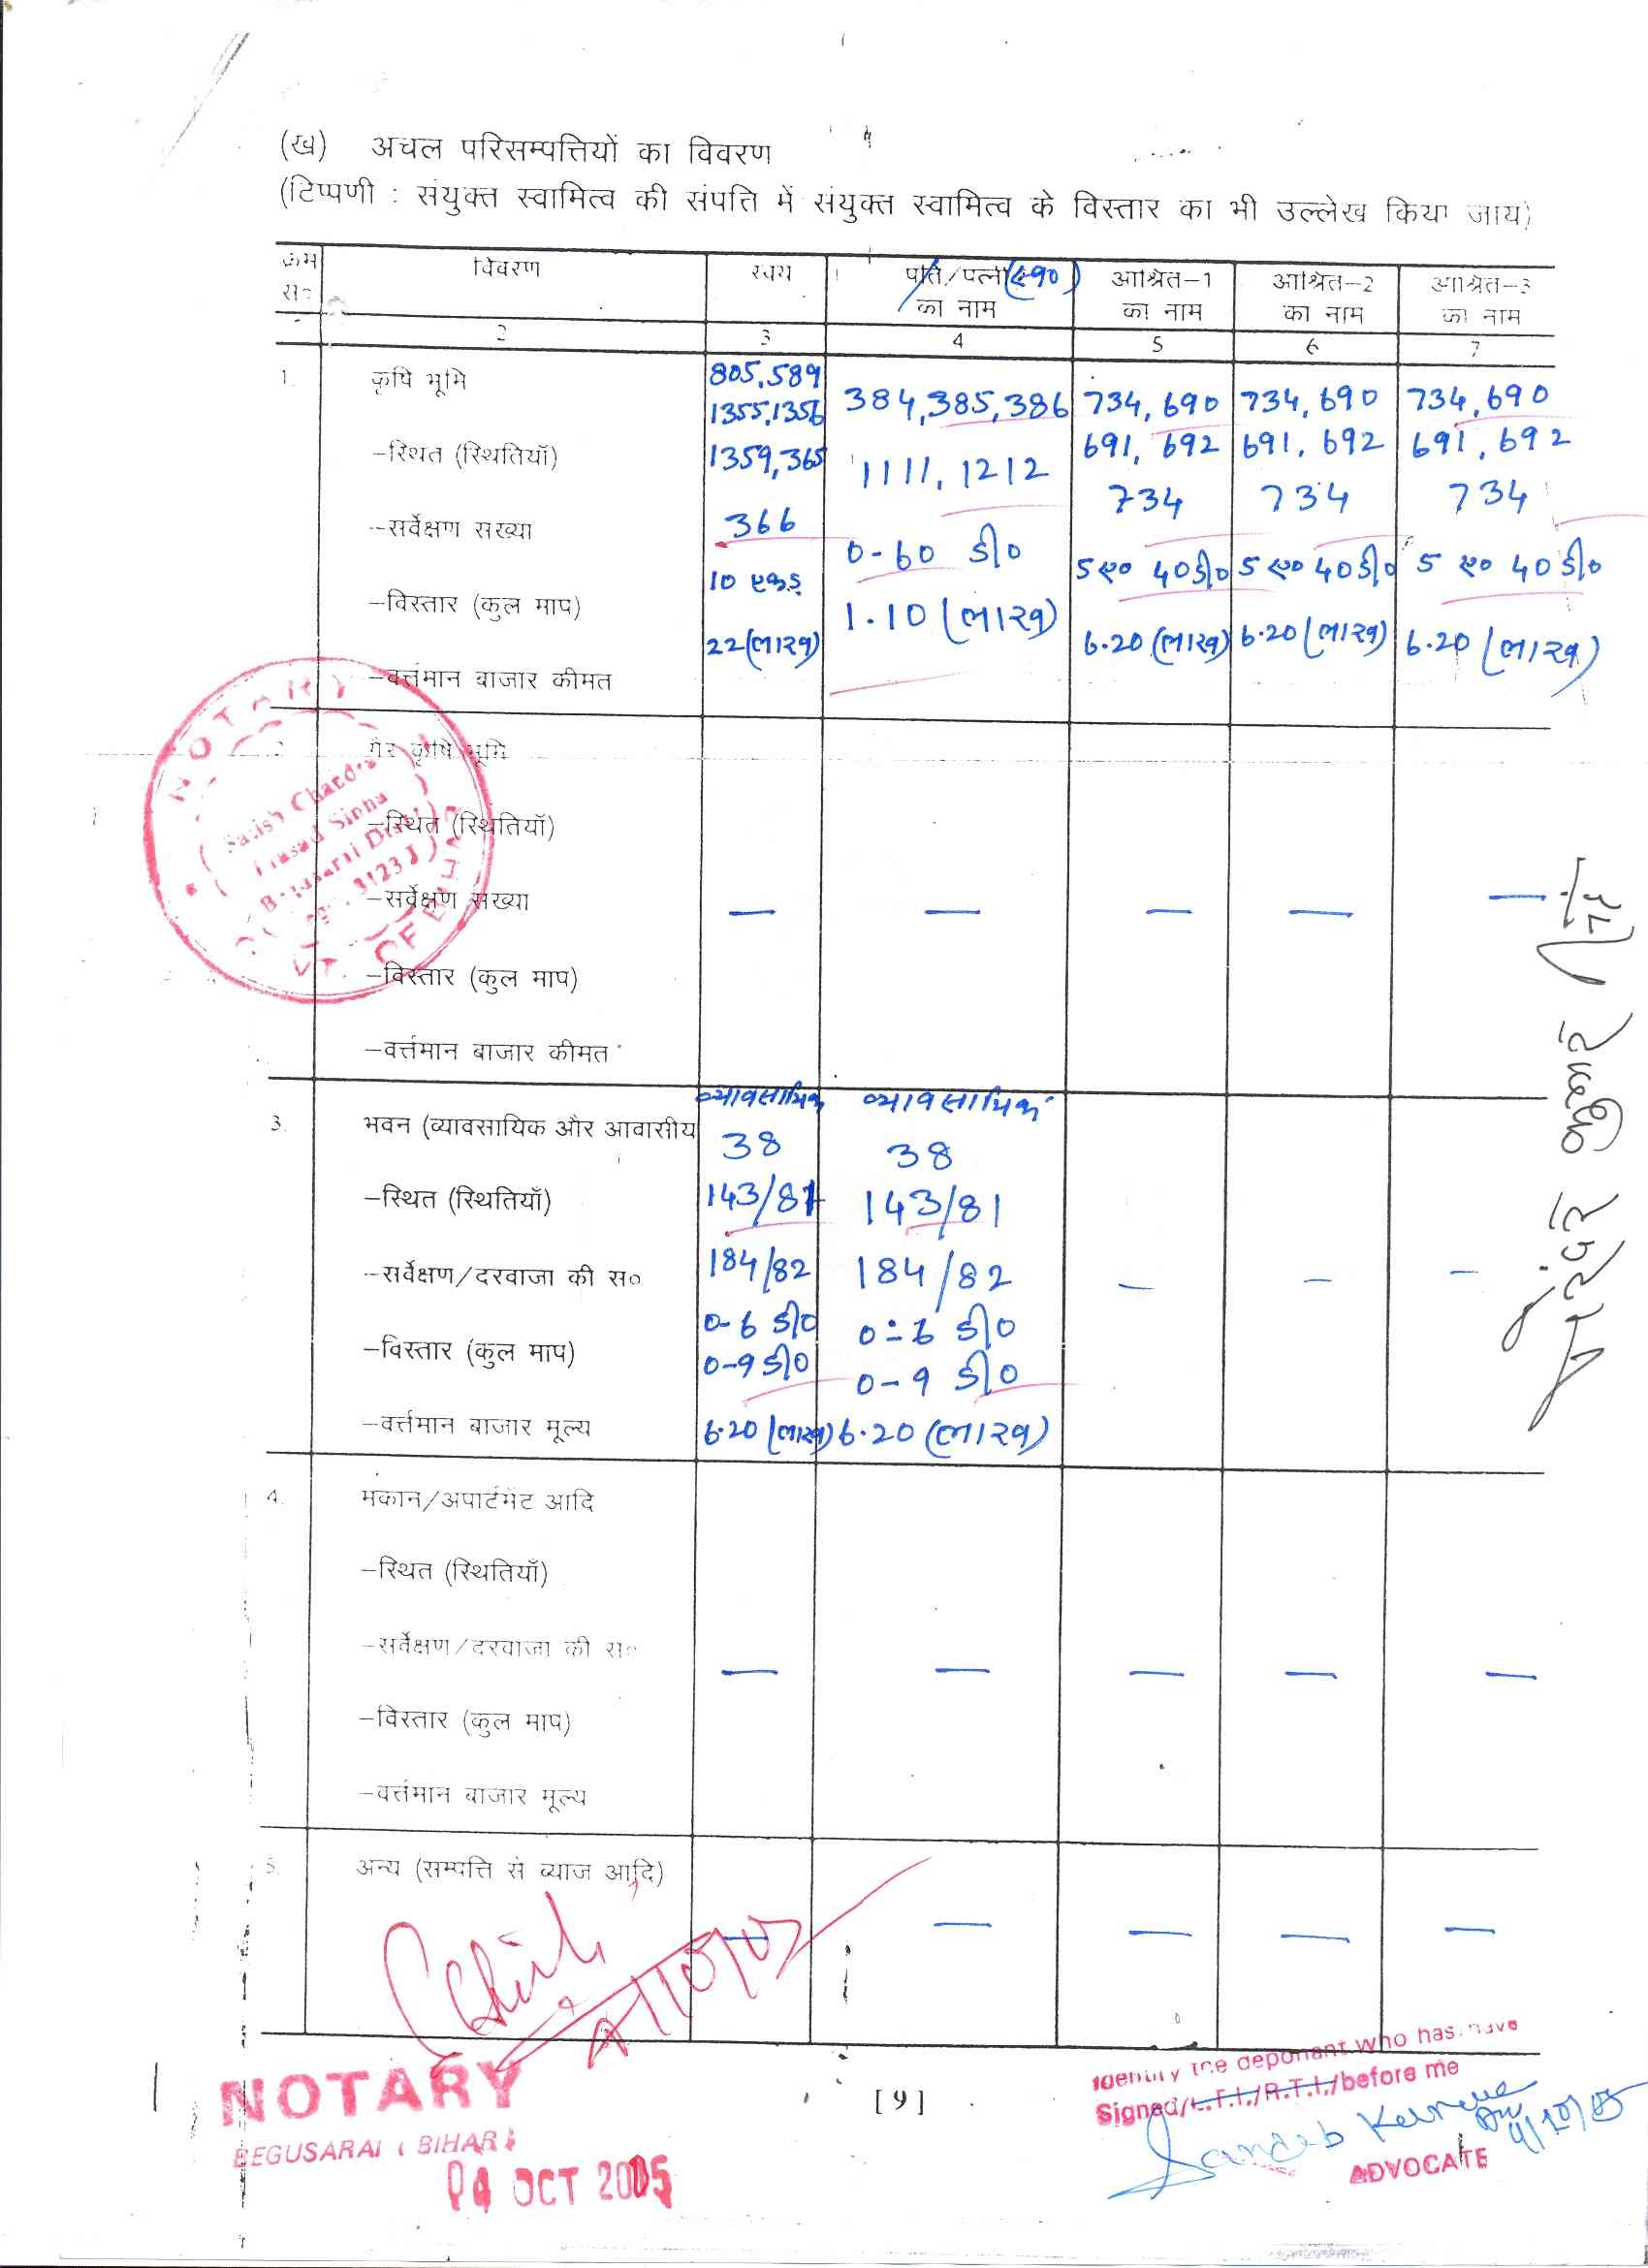 (ख) अचल परिसम्पत्तियों का विवरण
(टिप्पणी : संयुक्त स्वामित्व की संपत्ति में संयुक्त स्वामित्व के विस्तार का भी उल्लेख किया जाय)
क्रम सं० विवरण स्वयं पति/पत्नी का नाम आश्रित-1 का नाम आश्रित-2 का नाम आश्रित-3 का नाम
2 3 4 5 6 7
1. कृषि भूमि 805,589
1355,1356 384,385,386 734,690 734,690 734,690
-स्थित (स्थितियाँ) 1359,365 1111,1212 691,692 691,692 691,692
734 734 734
-सर्वेक्षण संख्या 366 0-60 डी० 5 ए० 40 डी० 5 ए० 40 डी० 5 ए० 40 डी०
-विस्तार (कुल माप) 10 एकड़
-वर्त्तमान बाजार कीमत 22(लाख) 1.10 (लाख) 6.20 (लाख) 6.20 (लाख) 6.20 (लाख)
2. गैर कृषि भूमि
-स्थित (स्थितियाँ)
-सर्वेक्षण संख्या — — — — —
-विस्तार (कुल माप)
-वर्त्तमान बाजार कीमत
व्यावसायिक व्यावसायिक
3. भवन (व्यावसायिक और आवासीय 38 38
-स्थित (स्थितियाँ) 143/81 143/81
-सर्वेक्षण/दरवाजा की सं० 184/82 184/82 — — —
0-6 डी० 0-6 डी०
-विस्तार (कुल माप) 0-9 डी० 0-9 डी०
-वर्त्तमान बाजार मूल्य 6.20 (लाख) 6.20 (लाख)
4. मकान/अपार्टमेंट आदि
-स्थित (स्थितियाँ)
-सर्वेक्षण/दरवाजा की सं० — — — — —
-विस्तार (कुल माप)
-वर्त्तमान बाजार मूल्य
5. अन्य (सम्पत्ति से ब्याज आदि)
— — — — —
NOTARY
Satish Chandra
Prasad Sinha
सुरेन्द्र कुमार
NOTARY
BEGUSARAI (BIHAR)
04 OCT 2005
[9]
Identify the deponant who has/have
Signed/L.T.I./R.T.I./before me
4/10/05
ADVOCATE